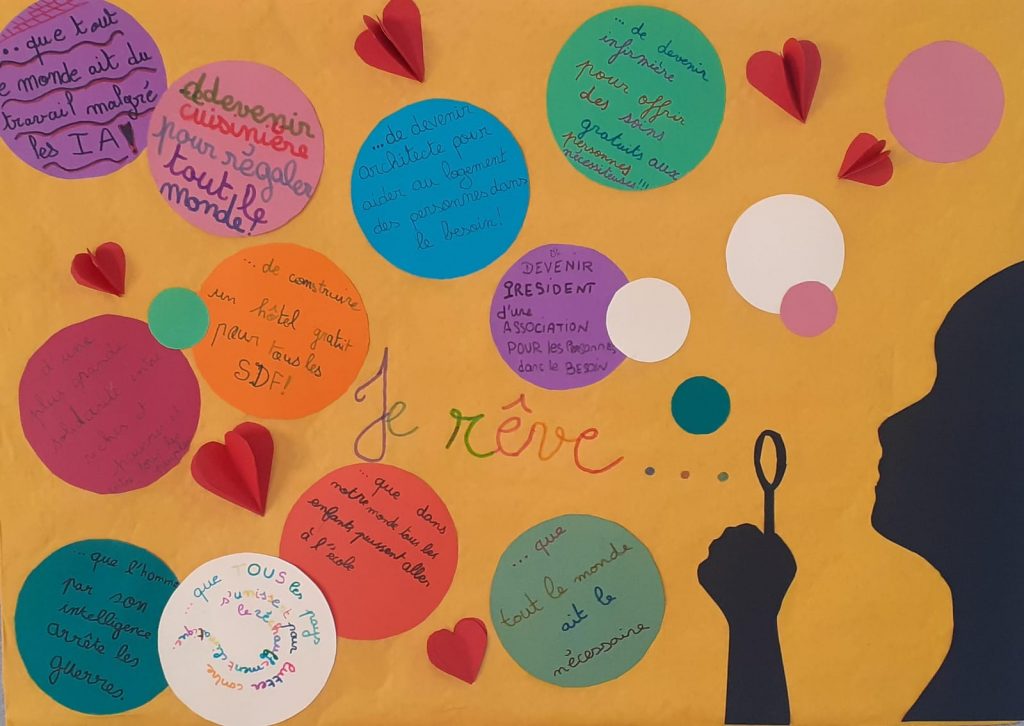 ... que tout
le monde ait du
travail malgré
les IA!
ddevenir
cuisinière
pour régaler
tout le
monde!
...de devenir
architecte pour
aider au logement
des personnes dans
le besoin!
... de devenir
infirmière
pour offrir
des soins
gratuits aux
personnes
nécessiteuses!!!
... de construire
un hôtel gratuit
pour tous les
SDF!
DEVENIR
PRESIDENT
d'une
ASSOCIATION
POUR les Personnes
dans le BESOIN
... d'une
plus grande
solidarité entre
riches et
pauvres et
Je rêve ....
... que dans
notre monde tous les
enfants puissent aller
à l'école
... que l'homme
par son
intelligence
arrête les
guerres.
... que TOUS les pays
s'unissent pour lutter contre
le réchauffement climatique.
... que
tout le monde
ait le
nécessaire